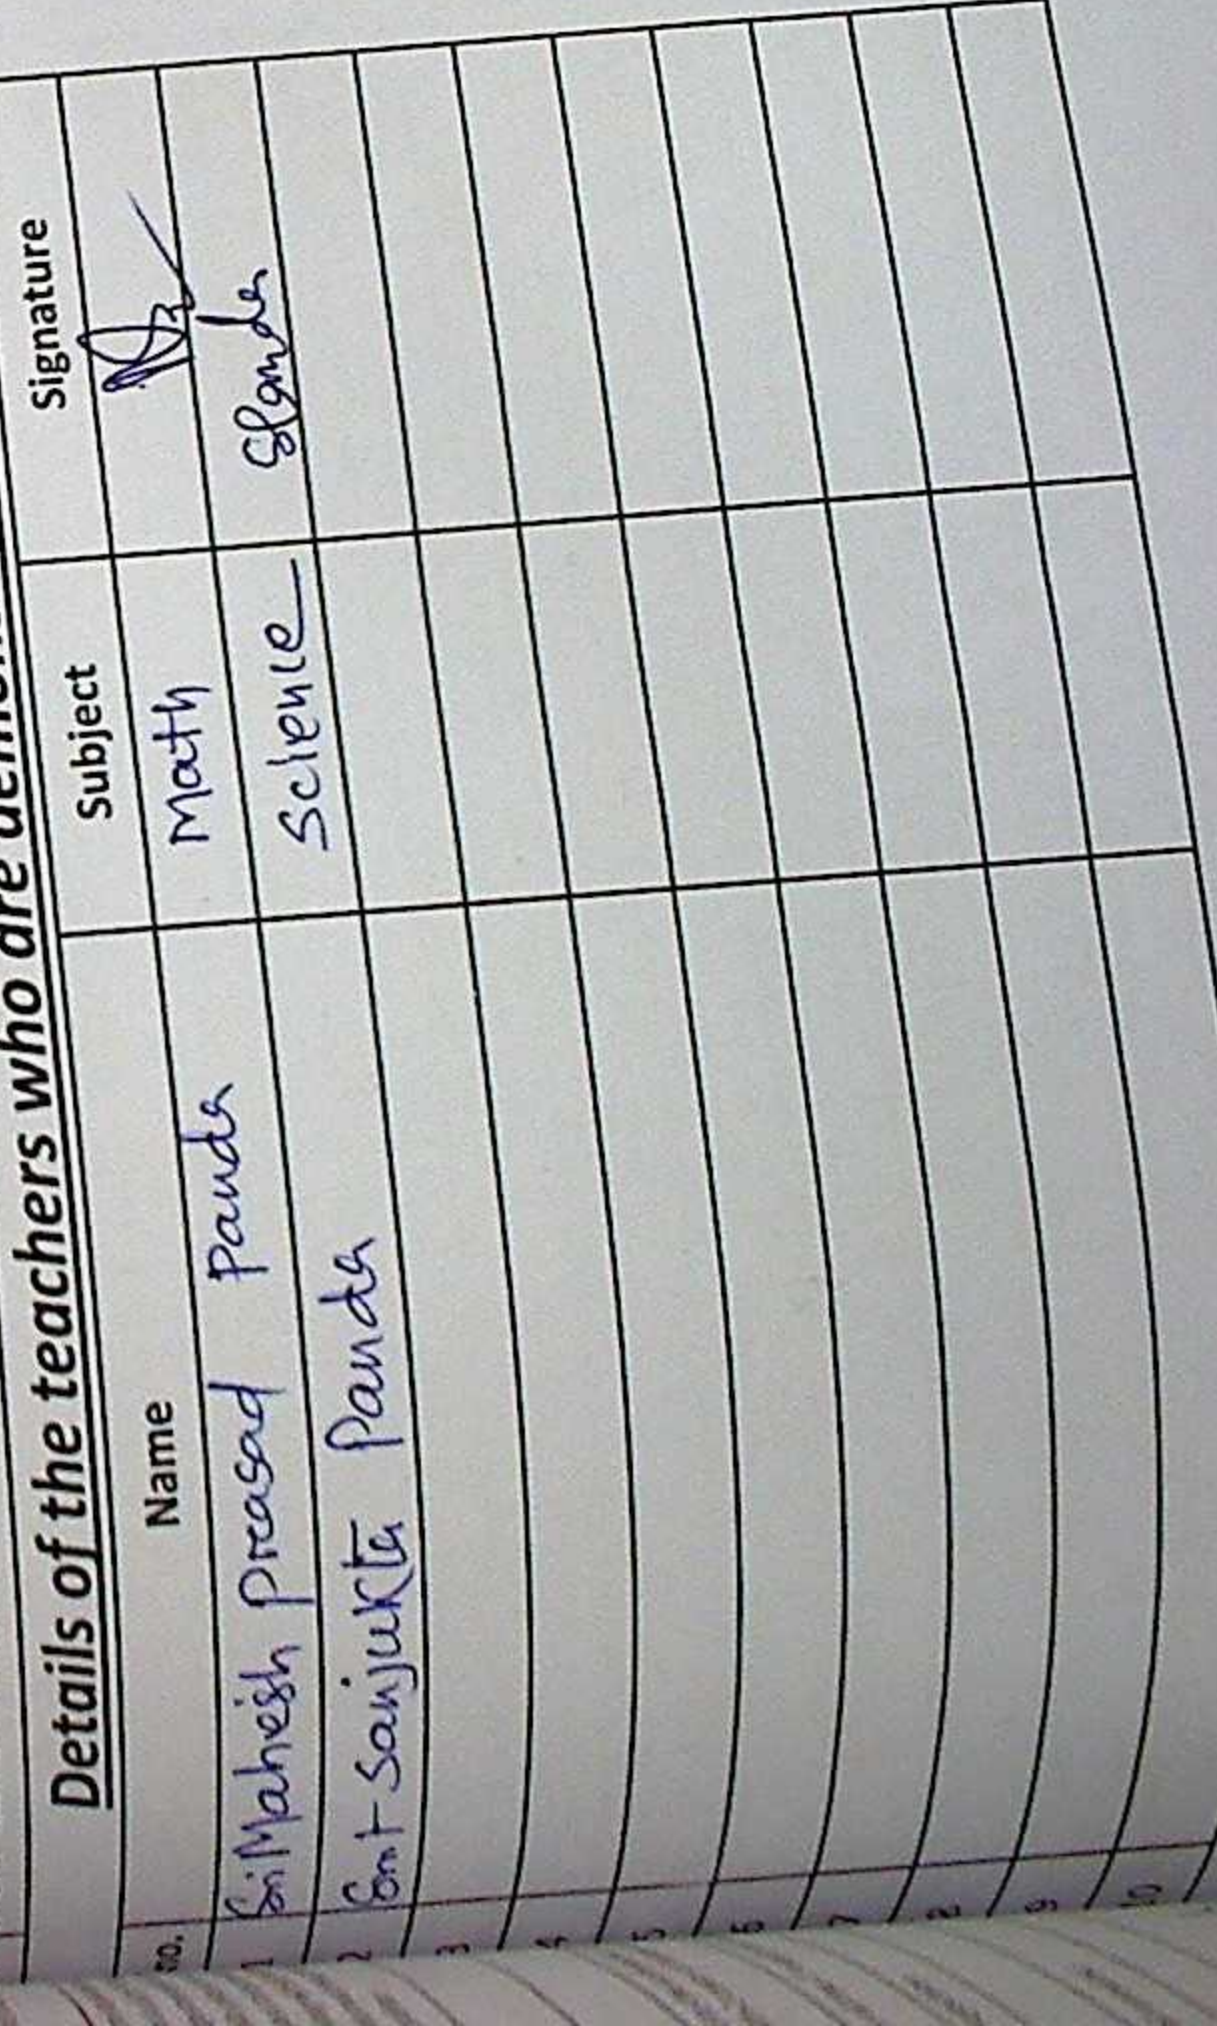 Details of the teachers who are
no. Name Subject Signature
1 Sri Mahesh Prasad Panda Math
2 Smt Sanjukta Panda Science SPanda
3
4
5
6
7
8
9
10